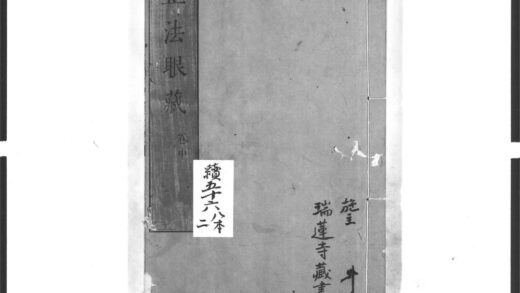 正法眼藏
瑞蓮寺藏書
施主
續五十六八本
二